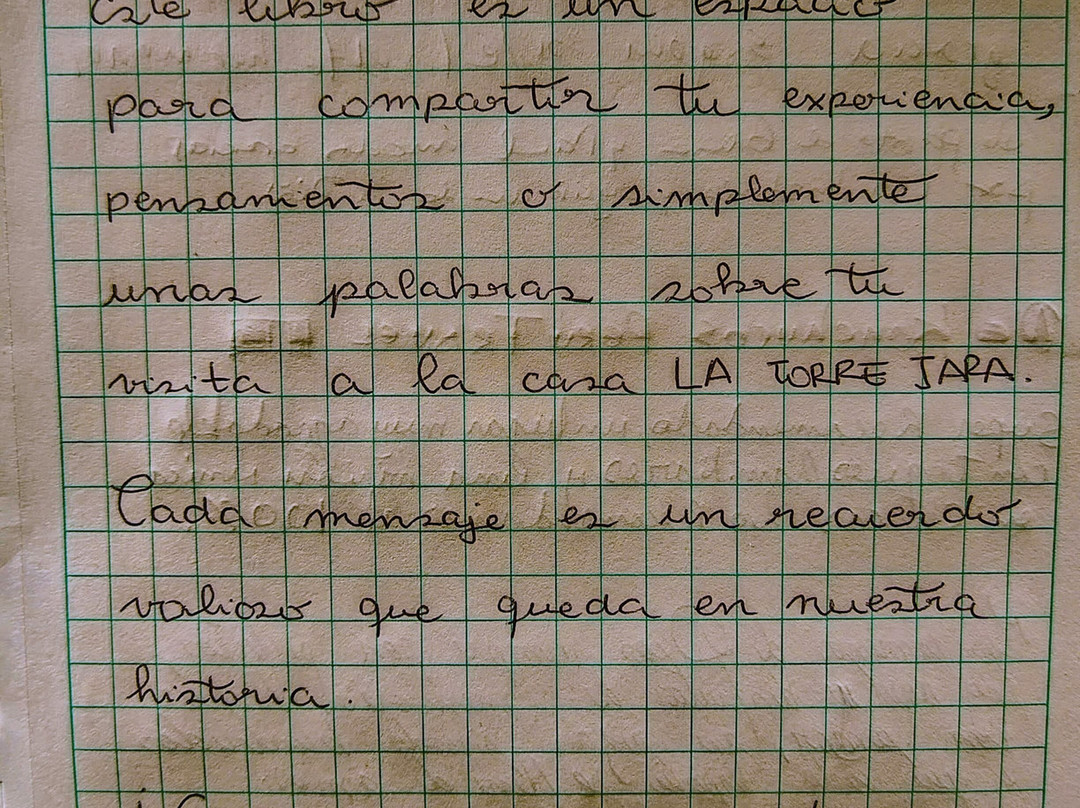 Este libro es un espacio
para compartir tu experiencia,
pensamientos o simplemente
unas palabras sobre tu
visita a la casa LA TORRE JARA.
Cada mensaje es un recuerdo
valioso que queda en nuestra
historia.